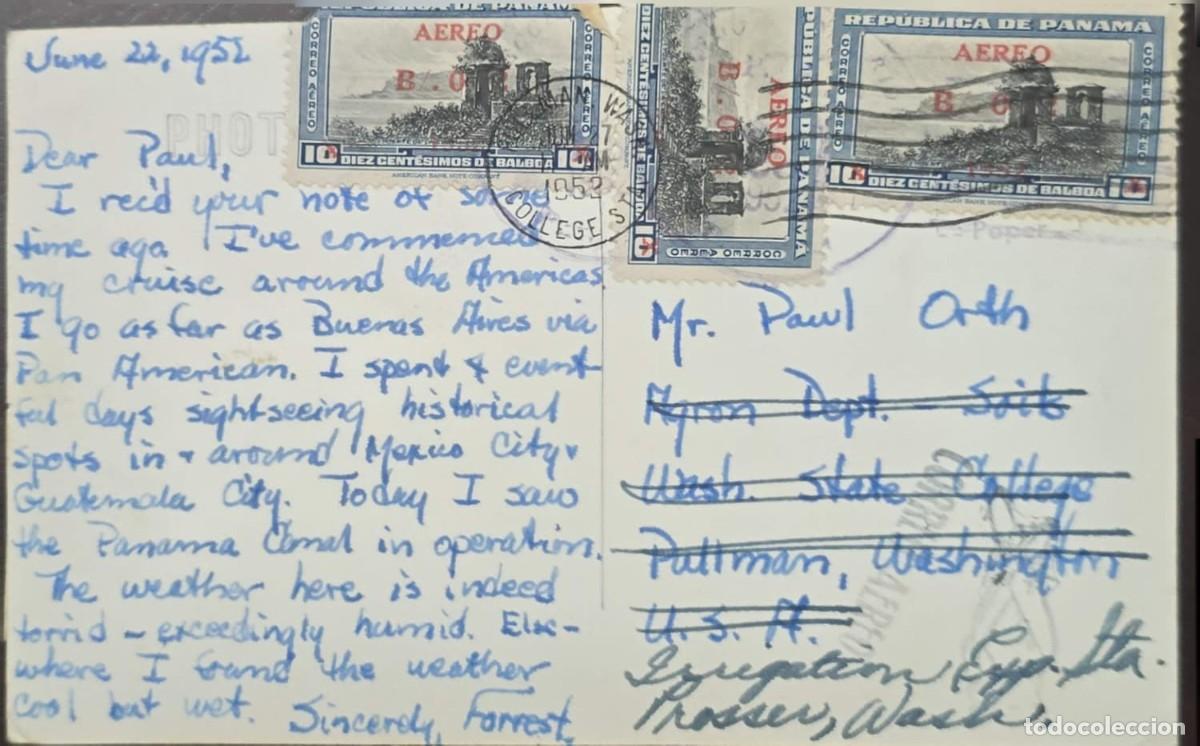 June 22, 1952
Dear Paul,
I rec'd your note of some
time ago. I've commenced
my cruise around the Americas.
I go as far as Buenas Aires via
Pan American. I spent 4 event-
ful days sight-seeing historical
spots in & around Mexico City &
Guatemala City. Today I saw
the Panama Canal in operation.
The weather here is indeed
torrid – exceedingly humid. Else-
where I found the weather
cool but wet. Sincerely, Forrest.
REPÚBLICA DE PANAMÁ
AEREO
CORREO AÉREO
CORREO AÉREO
10
DIEZ CENTÉSIMOS DE BALBOA
AMERICAN BANK NOTE COMPANY
WASH
27
1952
COLLEGE STA
AEREO
REPÚBLICA DE PANAMÁ
DIEZ CENTÉSIMOS DE BALBOA
CORREO AÉREO
REPÚBLICA DE PANAMÁ
AEREO
CORREO AÉREO
CORREO AÉREO
1952
10
DIEZ CENTÉSIMOS DE BALBOA
AMERICAN BANK NOTE COMPANY
PHOT
Paper
Mr. Paul Orth
Agron Dept. – Soils
Wash. State College
Pullman, Washington
U.S.A.
Irrigation Exp. Sta.
Prosser, Wash.
CORREO AEREO
todocoleccion